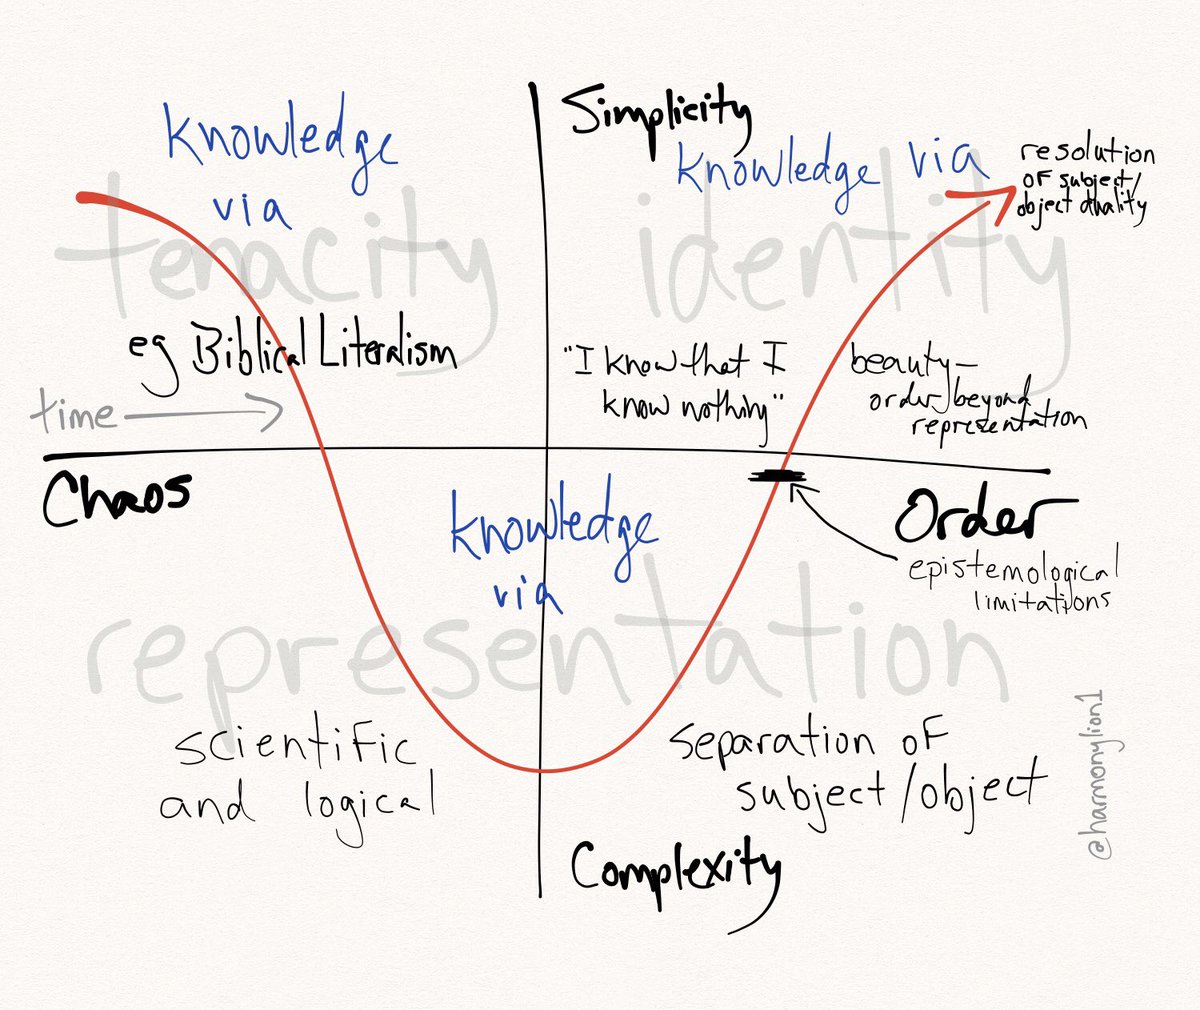 knowledge
via
tenacity
eg Biblical Literalism
time
Simplicity
knowledge via
identity
resolution
of subject/
object duality
"I know that I
know nothing"
beauty—
order beyond
representation
Chaos
Order
epistemological
limitations
knowledge
via
representation
scientific
and logical
separation of
subject/object
Complexity
@harmonylion1